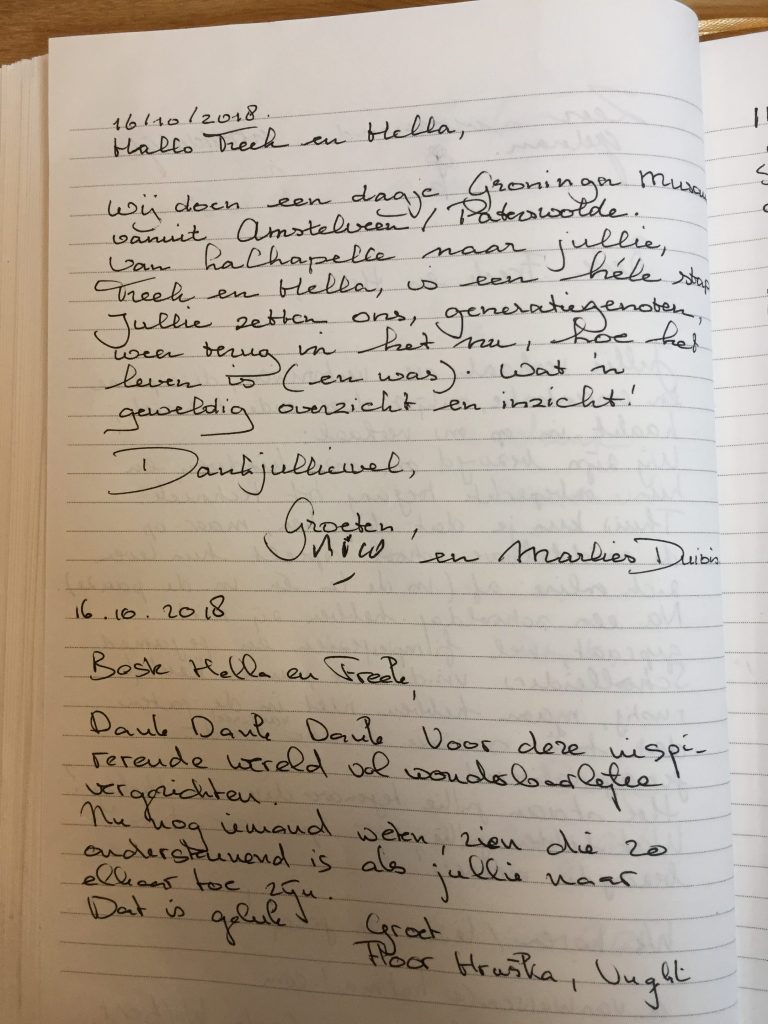 16/10/2018.
Hallo Freek en Hella,
Wij doen een dagje Groninger Museu
vanuit Amstelveen / Paterswolde.
Van LaChapelle naar jullie,
Freek en Hella, is een héle stap
Jullie zetten ons, generatiegenoten,
weer terug in het nu, hoe het
leven is (en was). Wat 'n
geweldig overzicht en inzicht!
Dankjulliewel,
Groeten,
Nico en Marlies
16.10.2018
Beste Hella en Freek,
Dank Dank Dank voor deze inspi-
rerende wereld vol wonderbaarlijke
vergezichten.
Nu nog iemand weten, zien die zo
ondersteunend is als jullie naar
elkaar toe zijn.
Dat is geluk
Groet
Floor Hruška, Vught